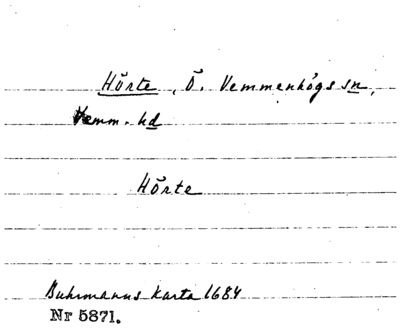 Hörte, Ö. Vemmenhögs sn,
Vemm. hd
Hörte
Buhrmanns karta 1684
Nr 5871.